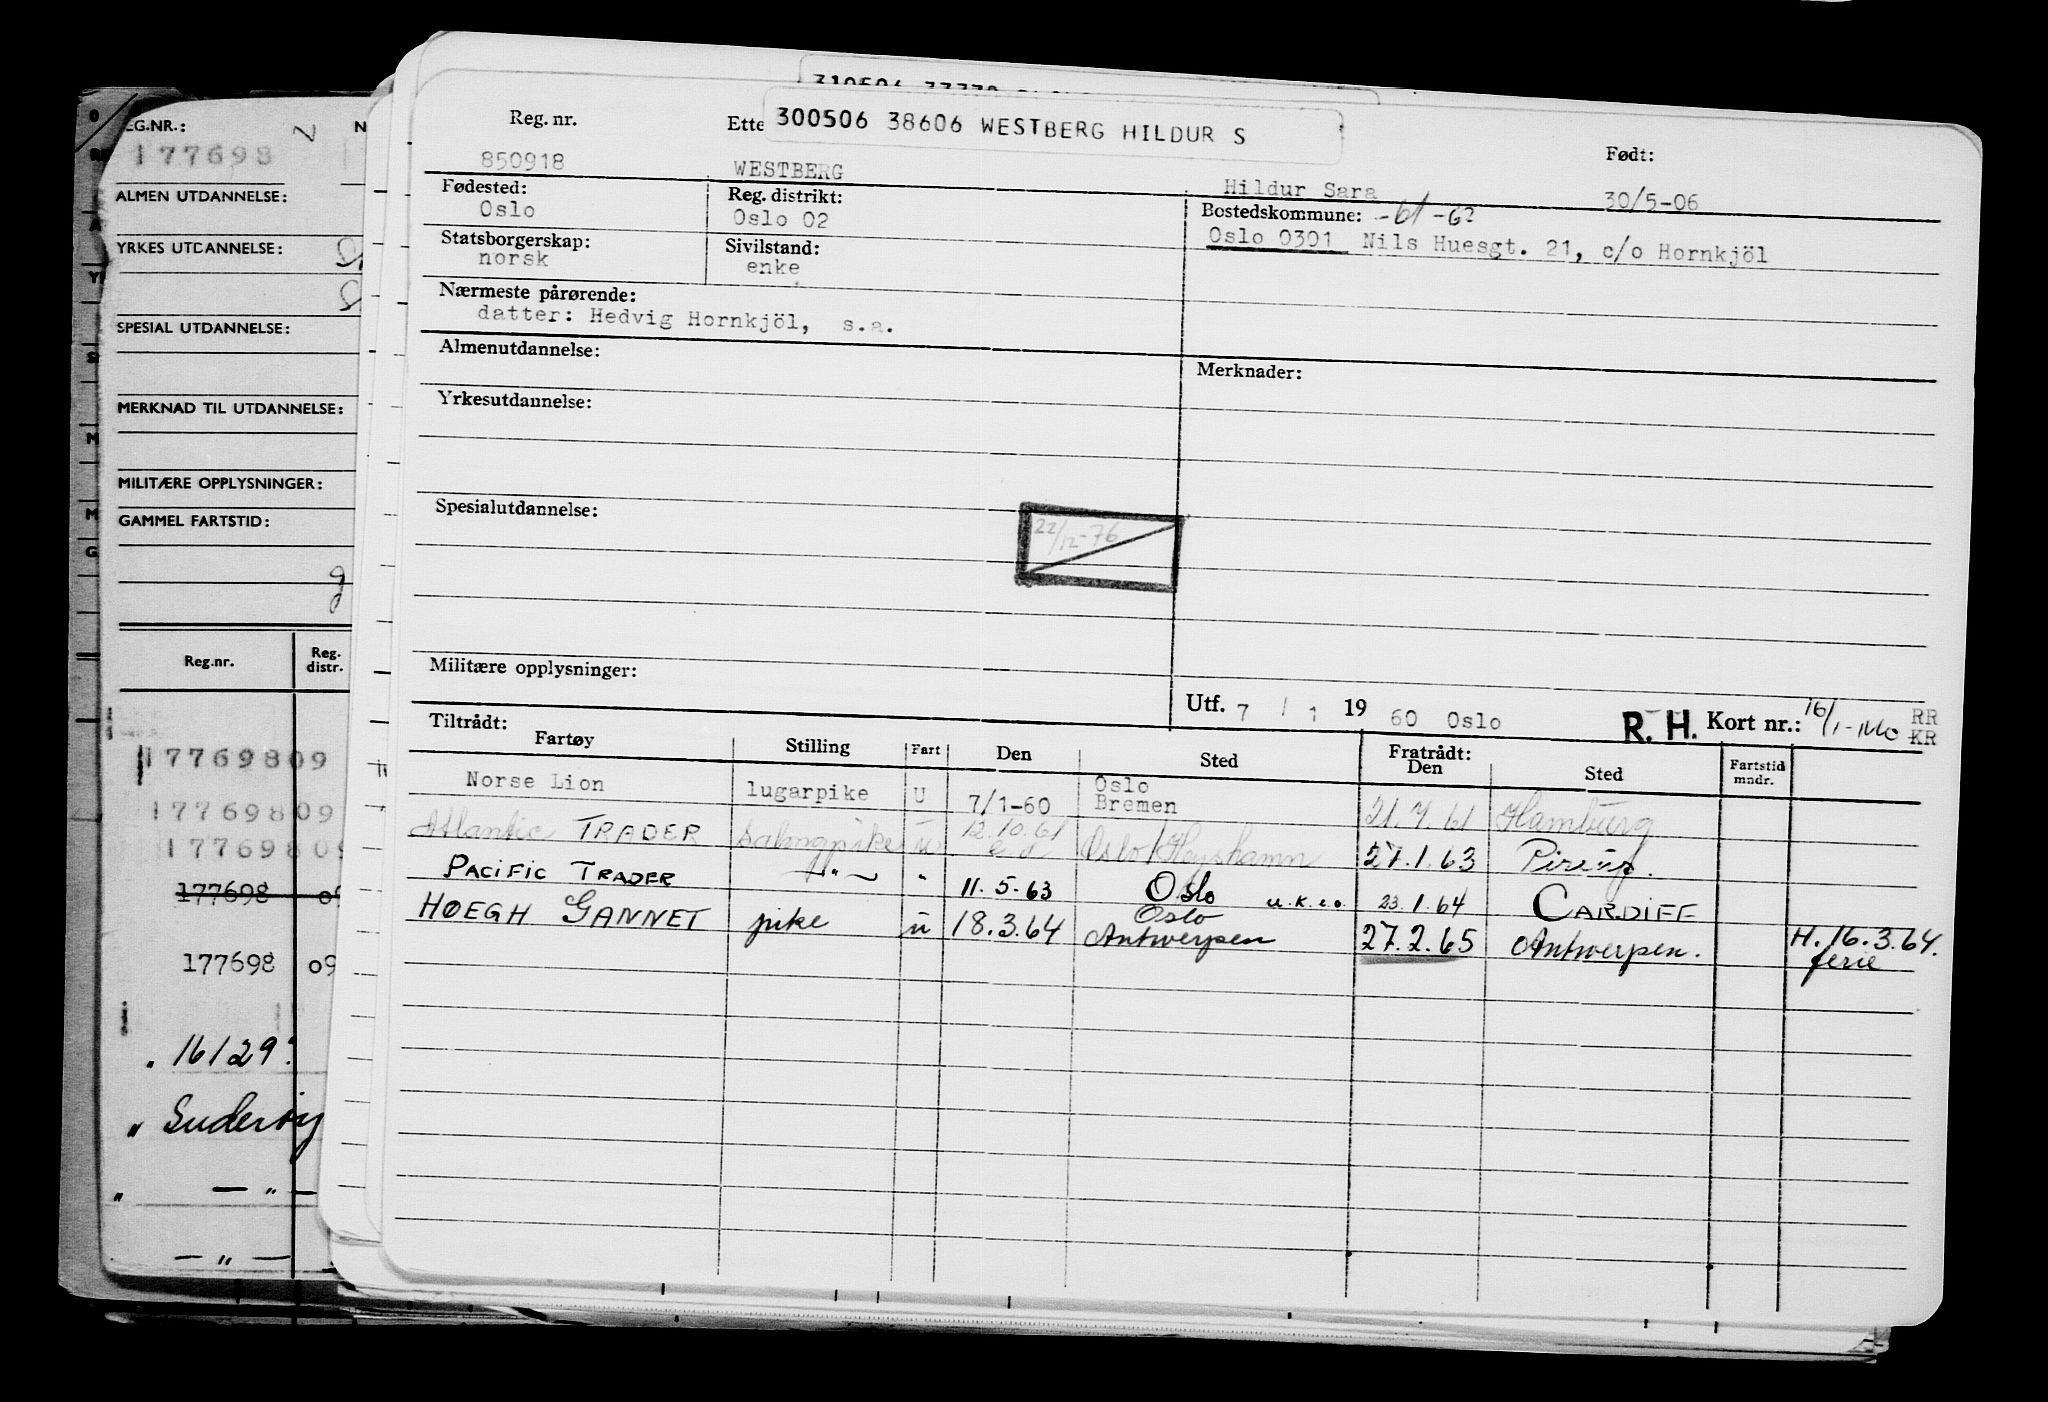 310506 33330
300506 38606 WESTBERG HILDUR S
Reg. nr. Ette Født:
850918 WESTBERG Hildur Sara 30/5-06
Fødested: Reg. distrikt: Bostedskommune: -61 -62
Oslo Oslo 02 Oslo 0301 Nils Huesgt. 21, c/o Hornkjöl
Statsborgerskap: Sivilstand:
norsk enke
Nærmeste pårørende:
datter: Hedvig Hornkjöl, s.a.
Almenutdannelse: Merknader:
Yrkesutdannelse:
Spesialutdannelse:
22/12-76
Militære opplysninger:
Utf. 7 / 1 19 60 Oslo R.H. Kort nr.: RR
KR
Tiltrådt: Fratrådt:
Fartøy Stilling Fart Den Sted Den Sted Fartstid mndr.
Norse Lion lugarpike U 7/1-60 Oslo Bremen 21.7.61 Hamburg
Atlantic TRADER salongpike u 12.10.61 Oslo/Heyshamn 27.1.63
PACIFIC TRADER —"— " 11.5.63 Oslo u.k.c.o. 23.1.64 CARDIFF
HØEGH GANNET pike u 18.3.64 Oslo Antwerpen 27.2.65 Antwerpen. H. 16.3.64.
ferie
EG.NR.: N
177698
ALMEN UTDANNELSE:
YRKES UTDANNELSE:
SPESIAL UTDANNELSE:
MERKNAD TIL UTDANNELSE:
MILITÆRE OPPLYSNINGER:
GAMMEL FARTSTID:
Reg.nr. Reg. distr.
177698 09
177698 09
177698 09
177698 09
177698 09
" 16129
" Suderøy
" —"—
—"—